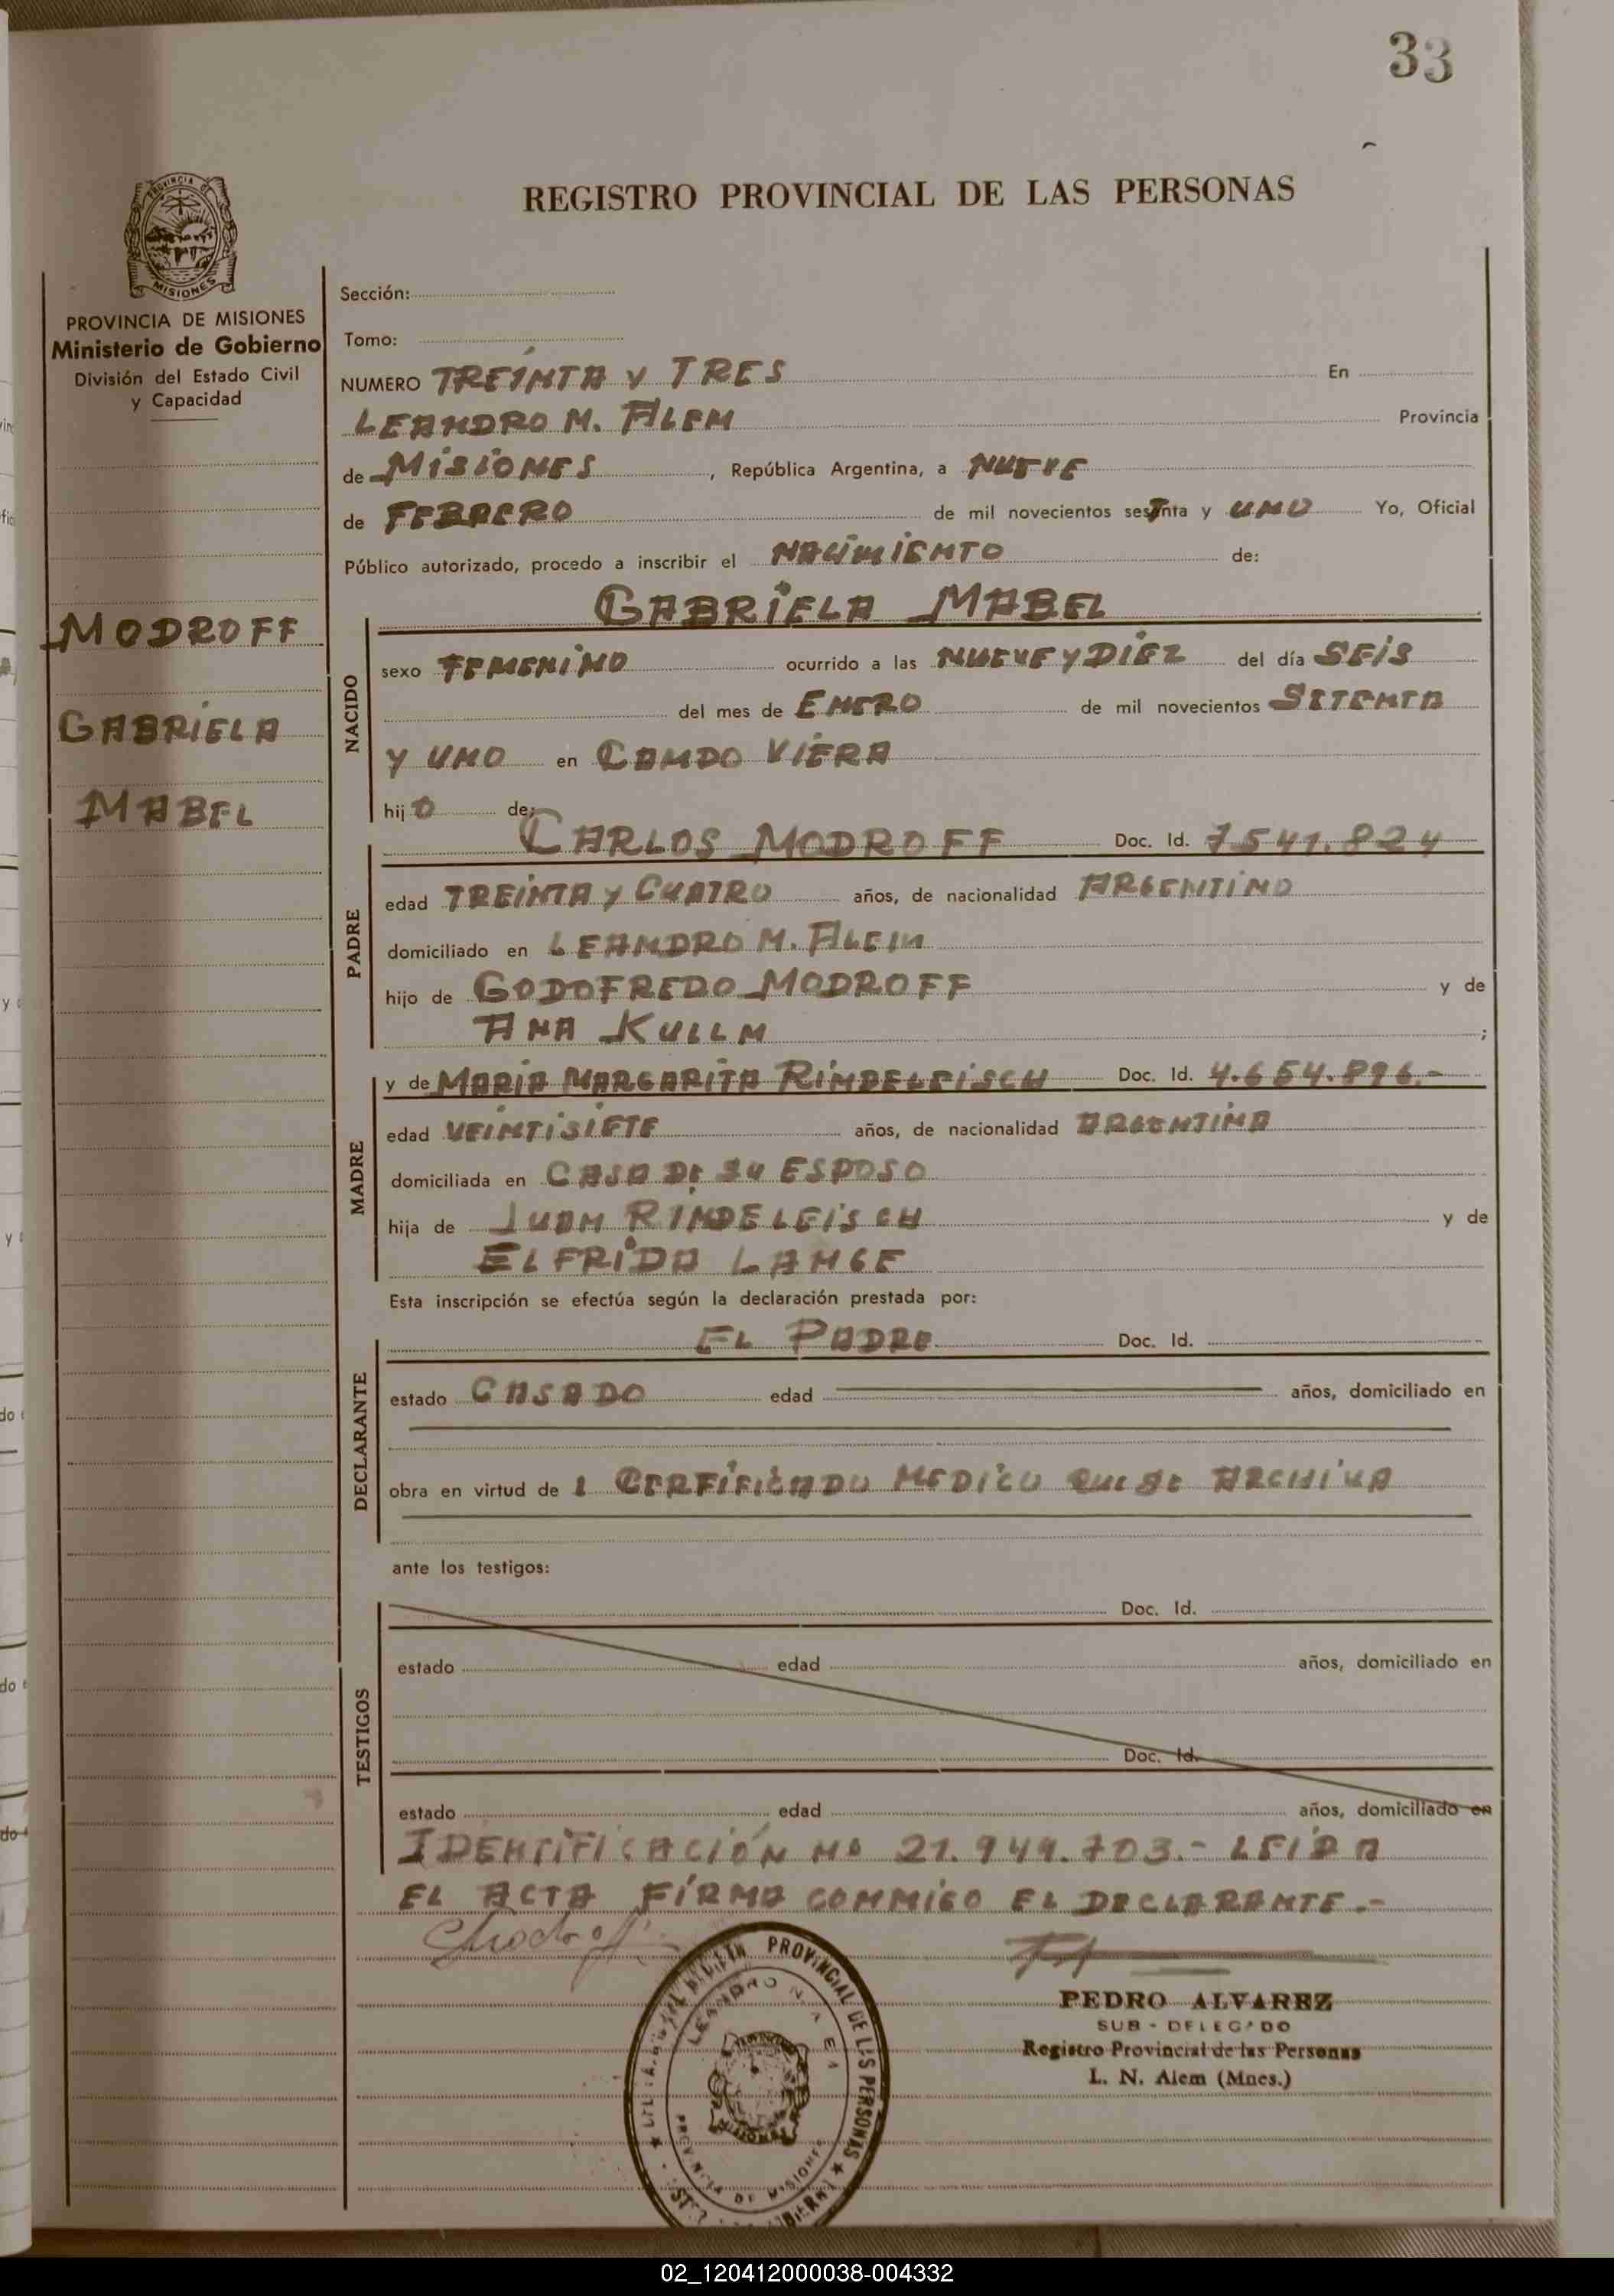 33
REGISTRO PROVINCIAL DE LAS PERSONAS
MISIONES
PROVINCIA DE MISIONES
Ministerio de Gobierno
División del Estado Civil
y Capacidad
MODROFF
GABRIELA
MABEL
Sección:
Tomo:
NUMERO TREINTA Y TRES En
LEANDRO N. ALEM Provincia
de MISIONES, República Argentina, a NUEVE
de FEBRERO de mil novecientos setenta y UNO Yo, Oficial
Público autorizado, procedo a inscribir el NACIMIENTO de:
GABRIELA MABEL
NACIDO
sexo FEMENINO ocurrido a las NUEVE Y DIEZ del día SEIS
del mes de ENERO de mil novecientos SETENTA
Y UNO en CAMPO VIERA
hijo de:
CARLOS MODROFF Doc. Id. 7541.824
PADRE
edad TREINTA Y CUATRO años, de nacionalidad ARGENTINO
domiciliado en LEANDRO N. ALEM
hijo de GODOFREDO MODROFF y de
ANA KULLM ;
MADRE
y de MARIA MARGARITA RINDELEISCH Doc. Id. 4.654.896.-
edad VEINTISIETE años, de nacionalidad ARGENTINA
domiciliada en CASA DE SU ESPOSO
hija de JUAN RINDELEISCH y de
ELFRIDA LANGE
Esta inscripción se efectúa según la declaración prestada por:
EL PADRE Doc. Id.
DECLARANTE
estado CASADO edad años, domiciliado en
obra en virtud de 1 CERTIFICADO MEDICO QUE SE ARCHIVA
ante los testigos:
TESTIGOS
Doc. Id.
estado edad años, domiciliado en
Doc. Id.
estado edad años, domiciliado en
IDENTIFICACIÓN Nº 21.949.703.- LEIDA
EL ACTA FIRMA CONMIGO EL DECLARANTE.-
PROVINCIAL DE LAS PERSONAS
LEANDRO N. ALEM
PROVINCIA DE MISIONES
PEDRO ALVAREZ
SUB-DELEGADO
Registro Provincial de las Personas
L. N. Alem (Mnes.)
02_120412000038-004332